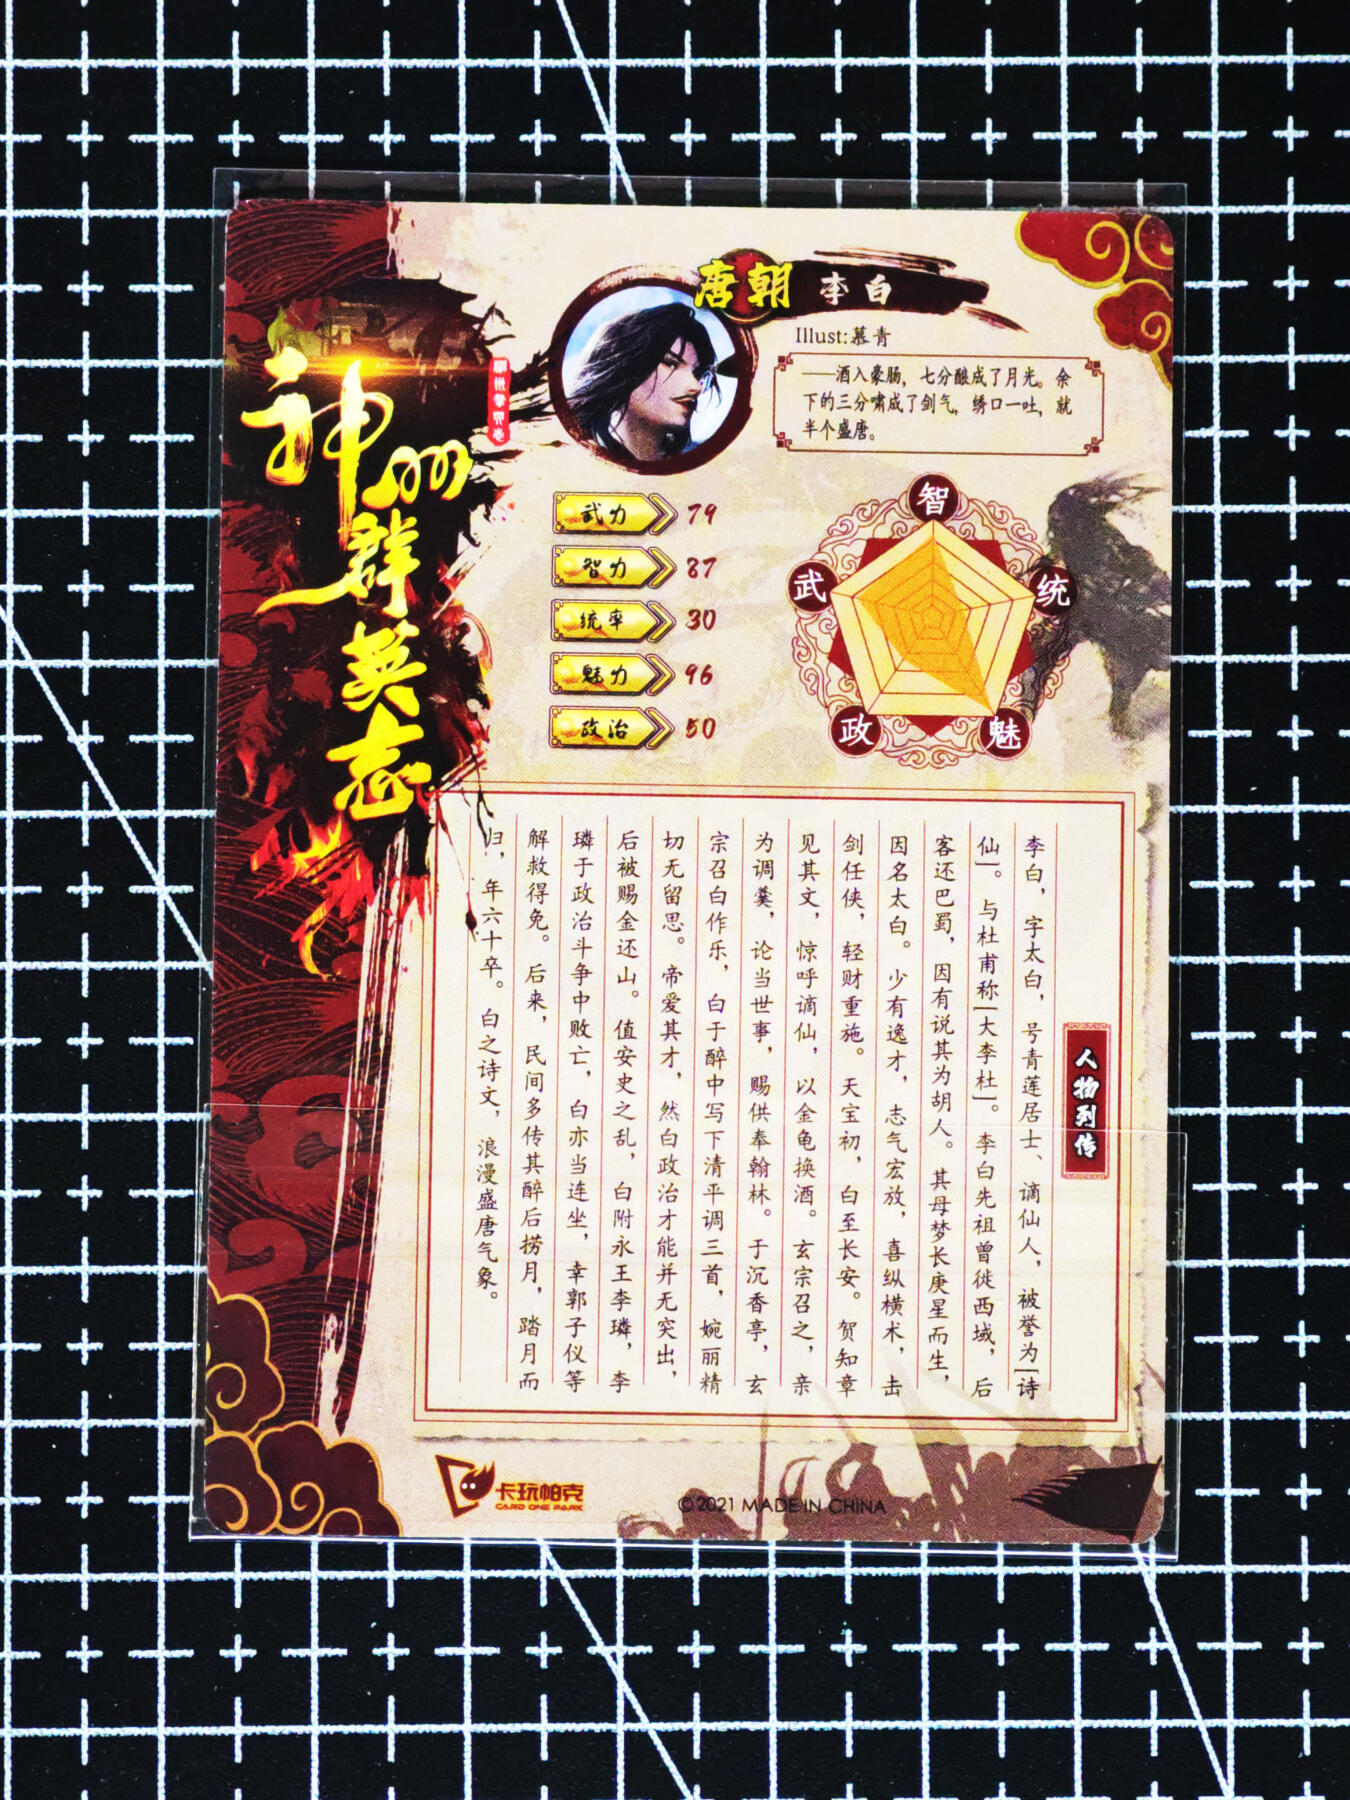 神州群英志
唐朝 李白
Illust:慕青
——酒入豪肠，七分酿成了月光。余
下的三分啸成了剑气，绣口一吐，就
半个盛唐。
武力 79
智力 87
统率 30
魅力 96
政治 50
智
武
统
政
魅
人物列传
李白，字太白，号青莲居士、谪仙人，被誉为「诗
仙」。与杜甫称「大李杜」。李白先祖曾徙西域，后
客还巴蜀，因有说其为胡人。其母梦长庚星而生，
因名太白。少有逸才，志气宏放，喜纵横术，击
剑任侠，轻财重施。天宝初，白至长安。贺知章
见其文，惊呼谪仙，以金龟换酒。玄宗召之，亲
为调羹，论当世事，赐供奉翰林。于沉香亭，玄
宗召白作乐，白于醉中写下清平调三首，婉丽精
切无留思。帝爱其才，然白政治才能并无突出，
后被赐金还山。值安史之乱，白附永王李璘，李
璘于政治斗争中败亡，白亦当连坐，幸郭子仪等
解救得免。后来，民间多传其醉后捞月，踏月而
归，年六十卒。白之诗文，浪漫盛唐气象。
卡玩帕克
CARD ONE PARK
©2021 MADE IN CHINA